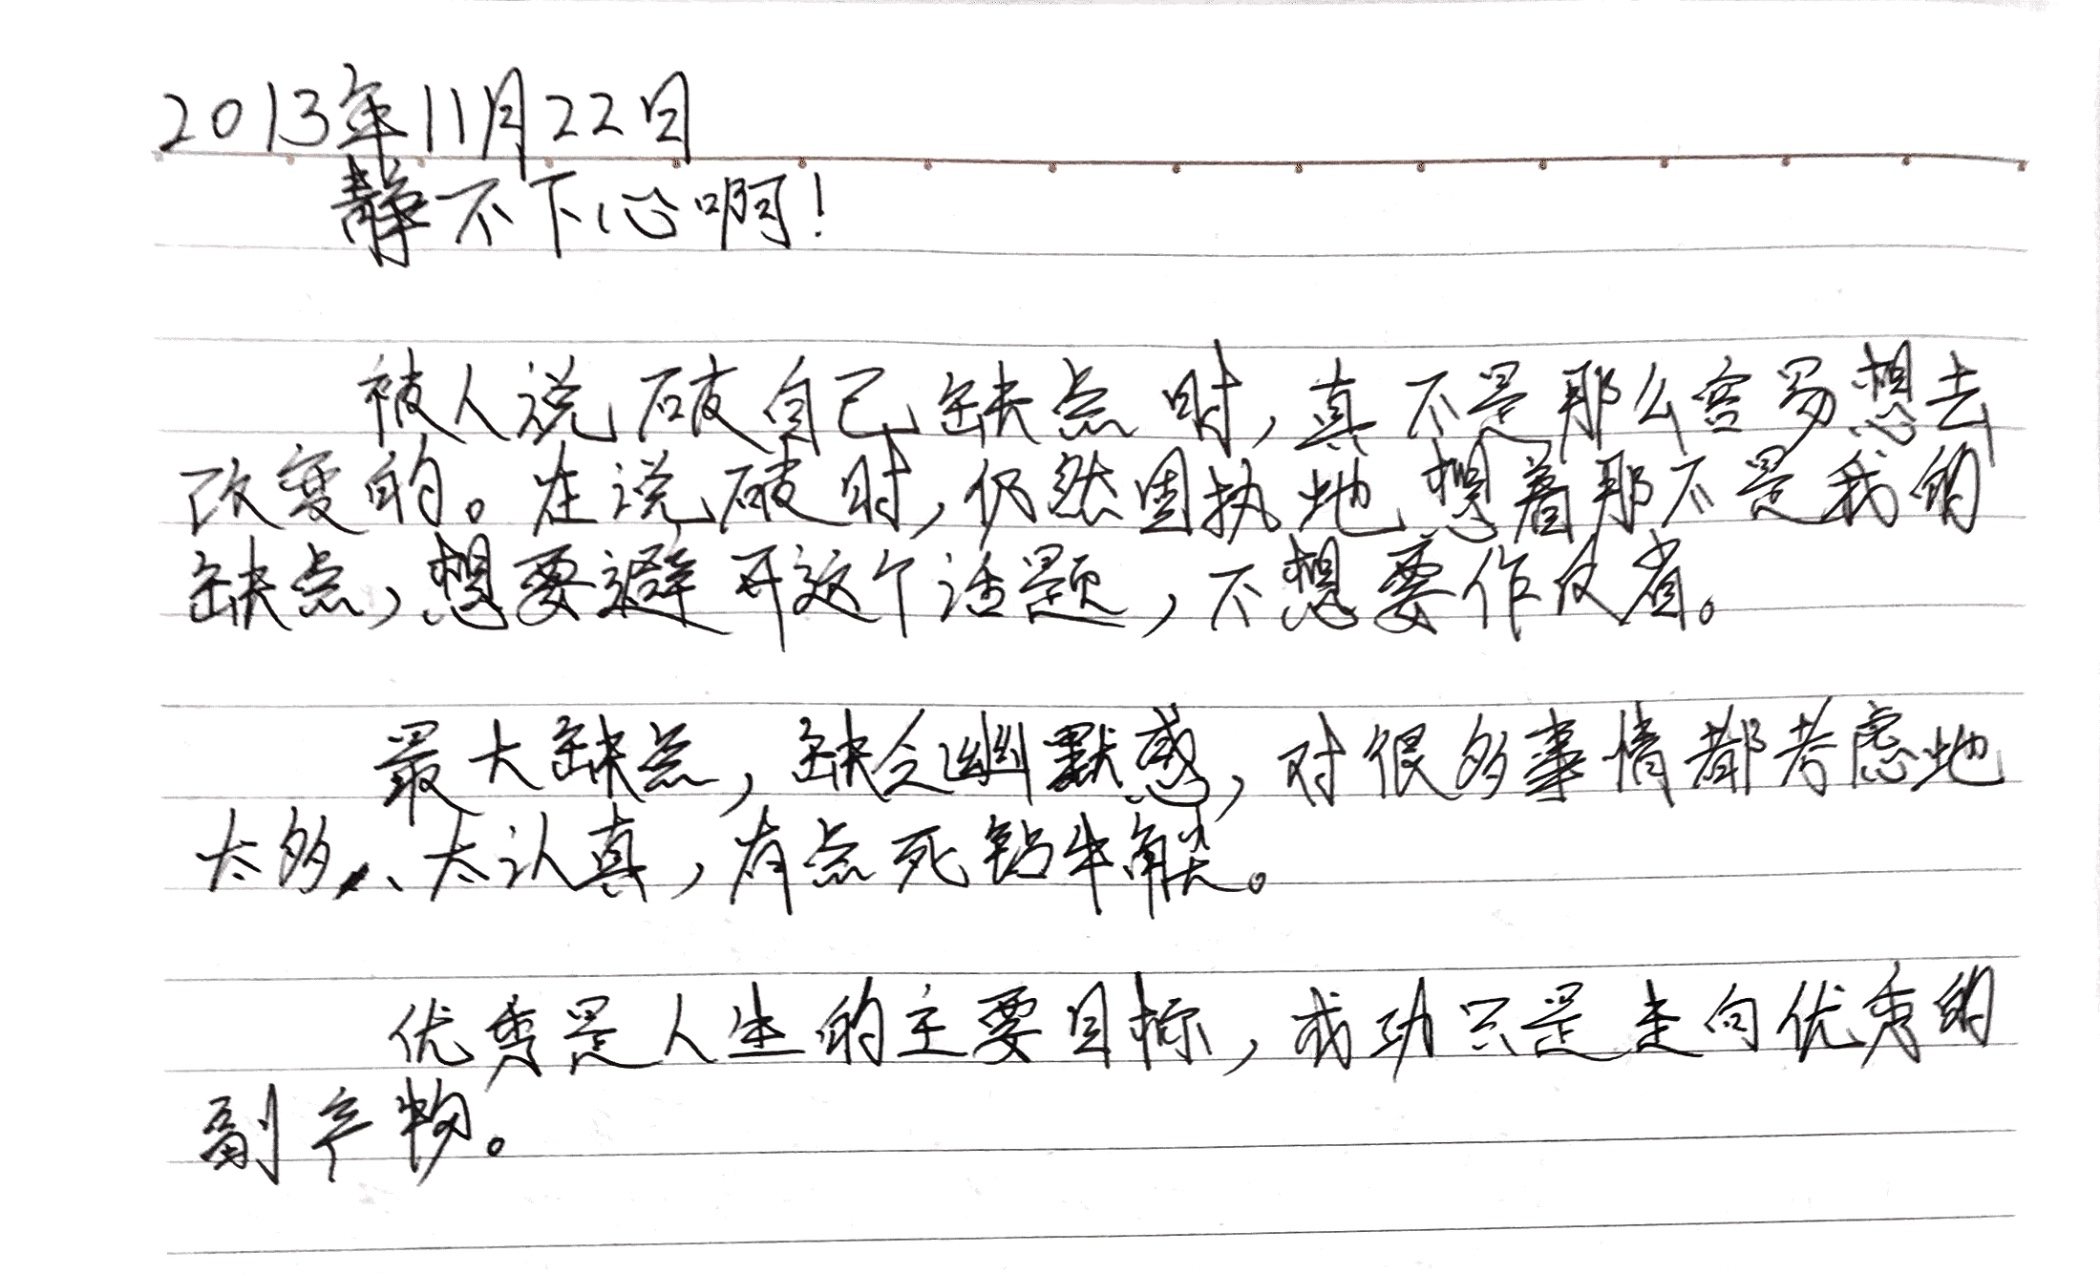 2013年11月22日
静不下心啊！
被人说破自己缺点时，真不是那么容易想去
改变的。在说破时，仍然固执地想着那不是我的
缺点，想要避开这个话题，不想要作反省。
最大缺点，缺乏幽默感，对很多事情都考虑地
太多、太认真，有点死钻牛角尖。
优秀是人生的主要目标，成功只是走向优秀的
副产物。